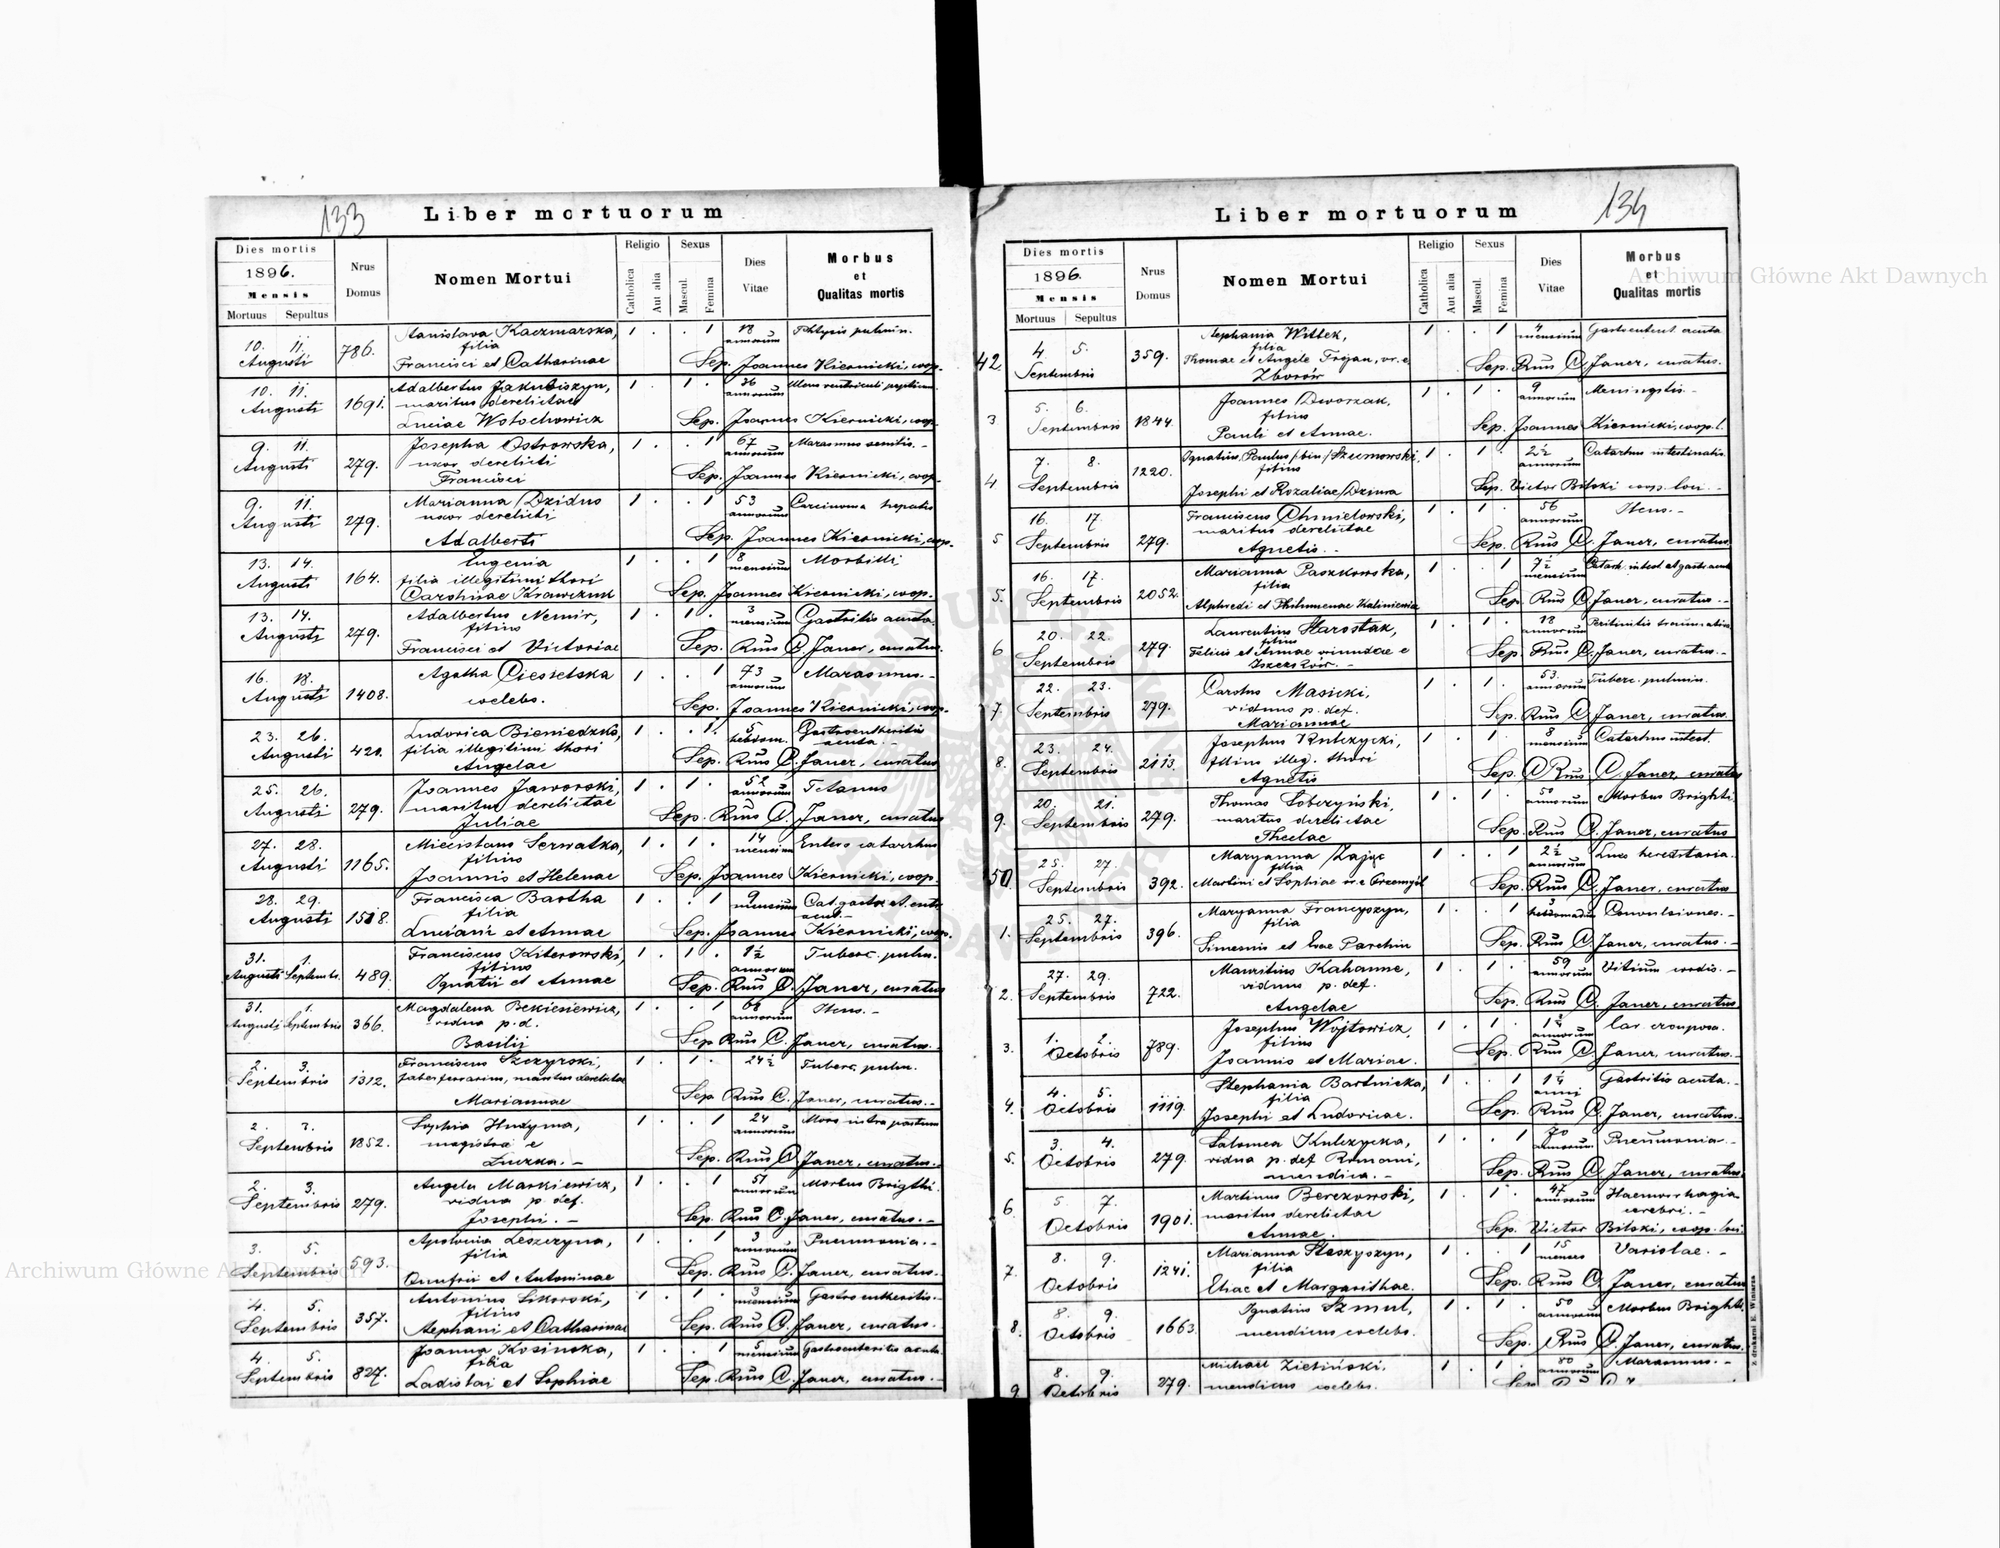 133
Liber mortuorum
Dies mortis
1896.
Mensis
Mortuus Sepultus
Nrus
Domus
Nomen Mortui
Religio
Catholica
Aut alia
Sexus
Mascul.
Femina
Dies
Vitae
Morbus
et
Qualitas mortis
10. 11.
Augusti
786.
Stanislava Kaczmarska,
filia
Francisci et Catharinae
1 . . 1
18
annorum
Phtysis pulmon.
Sep. Joannes Kiernicki, coop.
10. 11.
Augusti
1691.
Adalbertus Jakubiszyn,
maritus derelictae
Luciae Wołochowicz
1 . 1 .
36
annorum
Ulcus ventriculi
Sep. Joannes Kiernicki, coop.
9. 11.
Augusti
279.
Josepha Ostrowska,
uxor derelicti
Francisci
1 . . 1
67
annorum
Marasmus senilis. -
Sep. Joannes Kiernicki, coop.
9. 11.
Augusti
279.
Marianna Dzidus
uxor derelicti
Adalberti
1 . . 1
53
annorum
Carcinoma hepatis
Sep. Joannes Kiernicki, coop.
13. 14.
Augusti
164.
Eugenia
filia illegitimi thori
Carolinae Krawczuk
1 . . 1
8
mensium
Morbilli
Sep. Joannes Kiernicki, coop.
13. 14.
Augusti
279.
Adalbertus Nemir,
filius
Francisci et Victoriae
1 . 1 .
3
mensium
Gastritis acuta.
Sep. Rmus C. Janer, curatus.
16. 18.
Augusti
1408.
Agatha Ciesselska
coelebs.
1 . . 1
73
annorum
Marasmus. -
Sep. Joannes Kiernicki, coop.
23. 26.
Augusti
421.
Ludovica Bieniedzka,
filia illegitimi thori
Angelae
1 . . 1
5
hebdom.
Gastroentheritis
acuta. -
Sep. Rmus C. Janer, curatus
25. 26.
Augusti
279.
Joannes Jaworski,
maritus derelictae
Juliae
1 . 1 .
52
annorum
Tetanus
Sep. Rmus C. Janer, curatus
27. 28.
Augusti
1165.
Miecislaus Serwatka,
filius
Joannis et Helenae
1 . 1 .
14
mensium
Entero catarrhus
Sep. Joannes Kiernicki, coop.
28. 29.
Augusti
1518.
Francisca Bartha
filia
Luciani et Annae
1 . . 1
9
mensium
Cat. gastr. et ent.
acut. -
Sep. Joannes Kiernicki, coop.
31. 1.
Augusti Septembr.
489.
Franciscus Kiterowski,
filius
Ignatii et Annae
1 . 1 .
1½
annorum
Tuberc. pulm.
Sep. Rmus C. Janer, curatus
31. 1.
Augusti Septembris
366.
Magdalena Bekiesiewicz,
vidua p. d.
Basilii
1 . . 1
68
annorum
Ileus. -
Sep. Rmus C. Janer, curatus. -
2. 3.
Septembris
1312.
Franciscus Szczyrski,
faber ferrarius, maritus derelictae
Mariannae
1 . 1 .
24½
Tuberc. pulm.
Sep. Rmus C. Janer, curatus. -
2. 3.
Septembris
1852.
Sophia Hudyma,
magistra e
1 . . 1
24
annorum
Mors intra partum
Sep. Rmus C. Janer, curatus. -
2. 3.
Septembris
279.
Angela Markiewicz,
vidua p. def.
Josephi. -
1 . . 1
51
annorum
Morbus Brigthi.
Sep. Rmus C. Janer, curatus. -
3. 5.
Septembris
593.
Apolonia Leszczyna,
filia
Onufrii et Antoninae
1 . . 1
3
annorum
Pneumonia. -
Sep. Rmus C. Janer, curatus. -
4. 5.
Septembris
357.
Antonius Sikorski,
filius
Stephani et Catharinae
1 . 1 .
3
mensium
Gastro entheritis. -
Sep. Rmus C. Janer, curatus. -
4. 5.
Septembris
827.
Joanna Kosinska,
filia
Ladislai et Sophiae
1 . . 1
5
mensium
Gastroenteritis acuta.
Sep. Rmus C. Janer, curatus. -
134
Liber mortuorum
Dies mortis
1896.
Mensis
Mortuus Sepultus
Nrus
Domus
Nomen Mortui
Religio
Catholica
Aut alia
Sexus
Mascul.
Femina
Dies
Vitae
Morbus
et
Qualitas mortis
42.
4. 5.
Septembris
359.
Stephania Wittek,
filia
Thomae et Angele Trojan, or. e
Zborów
1 . . 1
4
mensium
Gastroenterit. acuta
Sep. Rmus C. Janer, curatus.
3
5. 6.
Septembris
1844.
Joannes Dworzak,
filius
Pauli et Annae.
1 . 1 .
9
annorum
Meningitis. -
Sep. Joannes Kiernicki, coop. l.
4
7. 8.
Septembris
1220.
Ignatius, Paulus /bin/ Szumowski,
filius
Josephi et Rozaliae Dziura
1 . 1 .
2½
annorum
Catarhus intestinalis.
Sep. Victor Bilski coop. loci. -
5
16. 17.
Septembris
279.
Franciscus Chmielowski,
maritus derelictae
Agnetis. -
1 . 1 .
56
annorum
Ileus. -
Sep. Rmus C. Janer, curatus.
5.
16. 17.
Septembris
2052.
Marianna Paszkowska,
filia
Alphredi et Philumenae Kaliniewicz
1 . . 1
7½
mensium
Catarh. intest et gastr. acut.
Sep. Rmus C. Janer, curatus. -
6
20. 22.
Septembris
279.
Laurentius Harostak,
filius
Felicis et Annae oriundae e
1 . 1 .
18
annorum
Peritinitis traumatica
Sep. Rmus C. Janer, curatus. -
7
22. 23.
Septembris
279.
Carolus Masicki,
viduus p. def.
Mariannae
1 . 1 .
53.
annorum
Tuberc. pulmon.
Sep. Rmus C. Janer, curatus.
8.
23. 24.
Septembris
2113.
Josephus Kulczycki,
filius illeg. thori
Agnetis
1 . 1 .
8
mensium
Catarhus intest.
Sep. C Rmus C. Janer, curatus
9.
20. 21.
Septembris
279.
Thomas Sobczyński,
maritus derelictae
Theclae
1 . 1 .
50
annorum
Morbus Brighti.
Sep. Rmus C. Janer, curatus
50.
25. 27.
Septembris
392.
Maryanna Zając
filia
Martini et Sophiae or. e Przemyśl
1 . . 1
2½
annorum
Lues hereditaria.
Sep. Rmus C. Janer, curatus
1.
25. 27.
Septembris
396.
Maryanna Franczyszyn,
filia
Simeonis et Evae Parchin
1 . . 1
3
hebdomadum
Convulsiones. -
Sep. Rmus C. Janer, curatus. -
2.
27. 29.
Septembris
722.
Mauritius Kahanne,
viduus p. def.
Angelae
1 . 1 .
59
annorum
Vitium cordis. -
Sep. Rmus C. Janer, curatus.
3.
1. 2.
Octobris
789.
Josephus Wojtowicz,
filius
Joannis et Mariae.
1 . 1 .
annorum
Lar. crouposa.
Sep. Rmus C. Janer, curatus. -
4.
4. 5.
Octobris
1119.
Stephania Bartnicka,
filia
Josephi et Ludovicae.
1 . . 1
1¼
anni
Gastritis acuta. -
Sep. Rmus C. Janer, curatus. -
5.
3. 4.
Octobris
279.
Salomea Kulczycka,
vidua p. def Romani,
mendica. -
1 . . 1
70
annorum
Pneumonia. -
Sep. Rmus C. Janer, curatus.
6.
5. 7.
Octobris
1901.
Martinus Berezowski,
maritus derelictae
Annae.
1 . 1 .
47
annorum
Haemorrhagia
cerebri. -
Sep. Victor Bilski, coop. loci.
7.
8. 9.
Octobris
1241.
Marianna Steszyszyn,
filia
Eliae et Margarithae.
1 . . 1
15
menses
Variolae. -
Sep. Rmus C. Janer, curatus
8.
8. 9.
Octobris
1663.
Ignatius Szmul,
mendicus coelebs.
1 . 1 .
50
annorum
Morbus Brighti.
Sep. Rmus C. Janer, curatus.
9
8. 9.
Octobris
279.
Michael Zieliński,
mendicus coelebs.
1 . 1 .
80
annorum
Marasmus. -
Sep.
Z drukarni E. Winiarza
Archiwum Główne Akt Dawnych
Archiwum Główne Akt Dawnych
ARCHIWUM GŁÓWNE AKT DAWNYCH